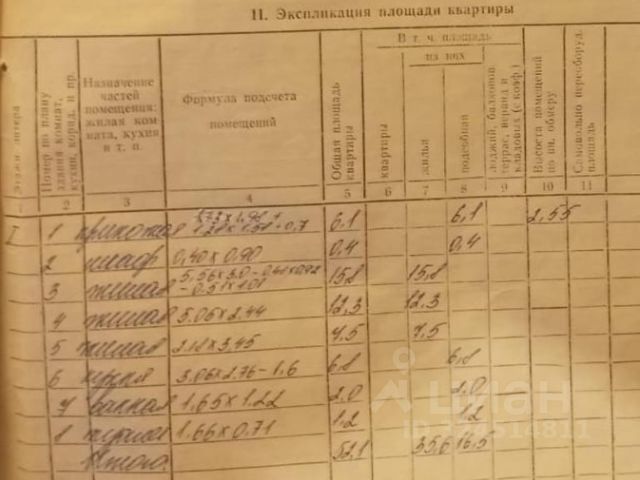 II. Экспликация площади квартиры
Этажи литера
Номер по плану здания комнат, кухни, корид. и пр.
Назначение частей помещения: жилая комната, кухня и т. п.
Формула подсчета помещений
Общая площадь квартиры
В т. ч. площадь
из них
квартиры
жилая
подсобная
лоджий, балконов террас, веранд и кладовых (с коэф.)
Высота помещений по вн. обмеру
Самовольно переоборуд. площадь
2 3 4 5 6 7 8 9 10 11
I 1 прихожая 6,1 6,1 2,55
2 шкаф 0,40 x 0,90 0,4 0,4
3 жилая 5,56 x 3,0 - 0,41 x 0,92 - 0,51 x 1,01 15,8 15,8
4 жилая 5.06 x 2.44 12,3 12,3
5 жилая 2.18 x 3,45 7,5 7,5
6 кухня 3.06 x 2.76 - 1.6 6,8 6,8
7 ванная 1,65 x 1.22 2,0 2,0
8 1.66 x 0.71 1,2 1,2
Итого 52,1 35,6 16,5
циан